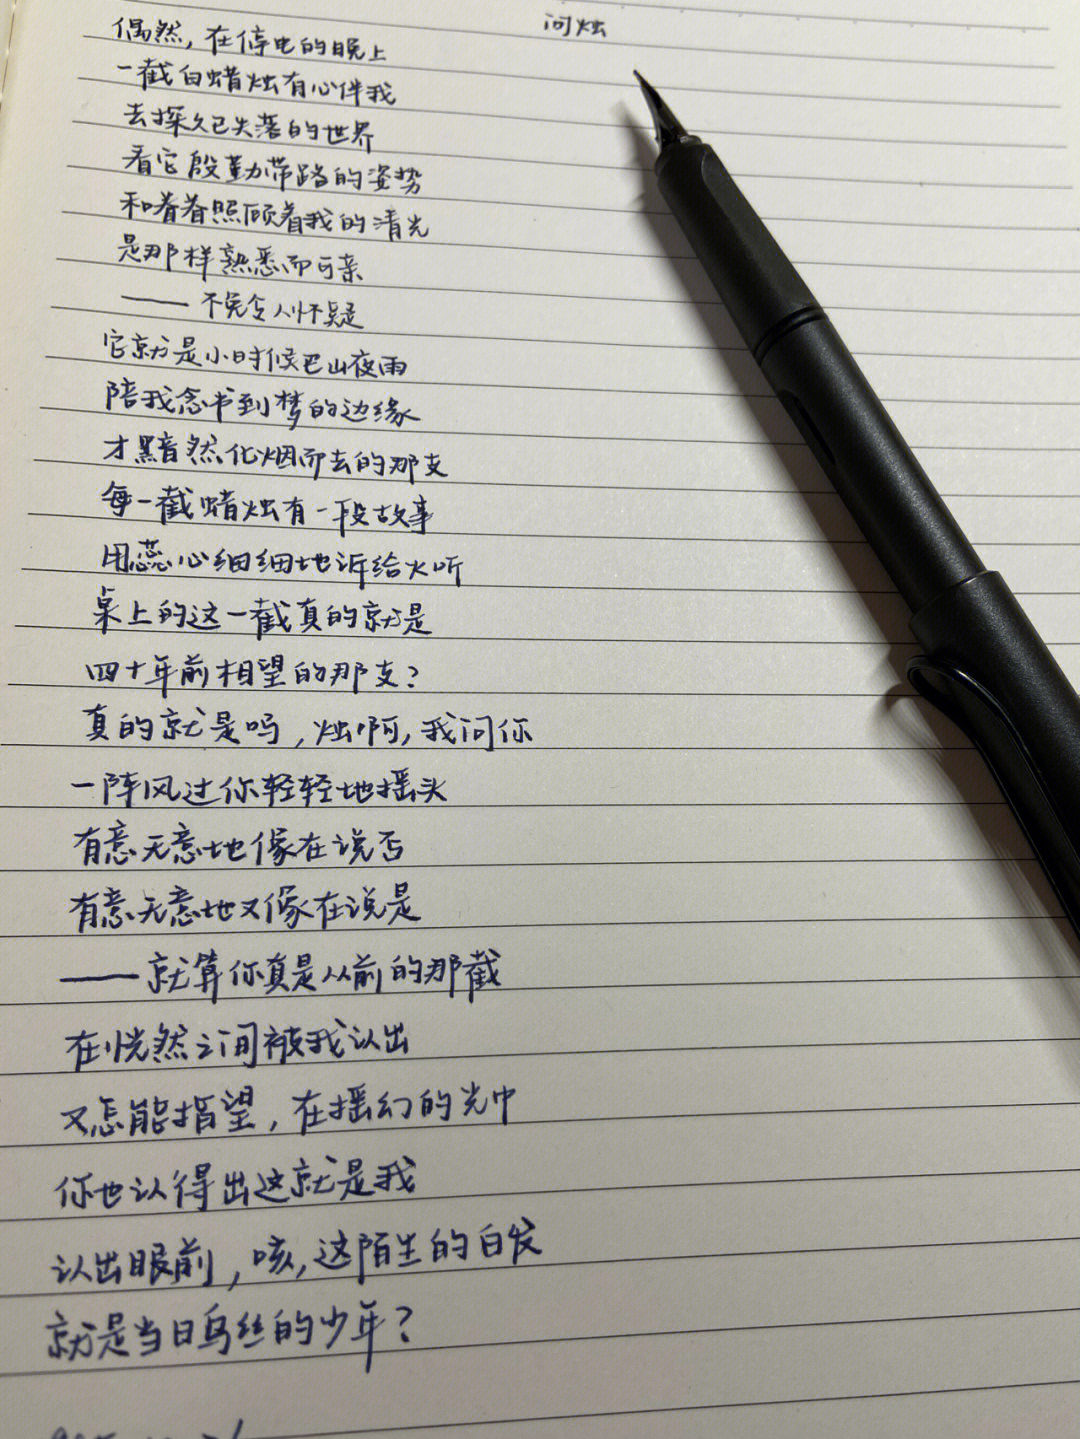 问烛
偶然,在停电的晚上
一截白蜡烛有心伴我
去探久已失落的世界
看它殷勤带路的姿势
和眷眷照顾着我的清光
是那样熟悉而可亲
——不免令人怀疑
它就是小时候巴山夜雨
陪我念书到梦的边缘
才黯然化烟而去的那支
每一截蜡烛有一段故事
用蕊心细细地诉给火听
桌上的这一截真的就是
四十年前相望的那支?
真的就是吗,烛啊,我问你
一阵风过你轻轻地摇头
有意无意地像在说否
有意无意地又像在说是
——就算你真是从前的那截
在恍然之间被我认出
又怎能指望,在摇幻的光中
你也认得出这就是我
认出眼前,咳,这陌生的白发
就是当日乌丝的少年?